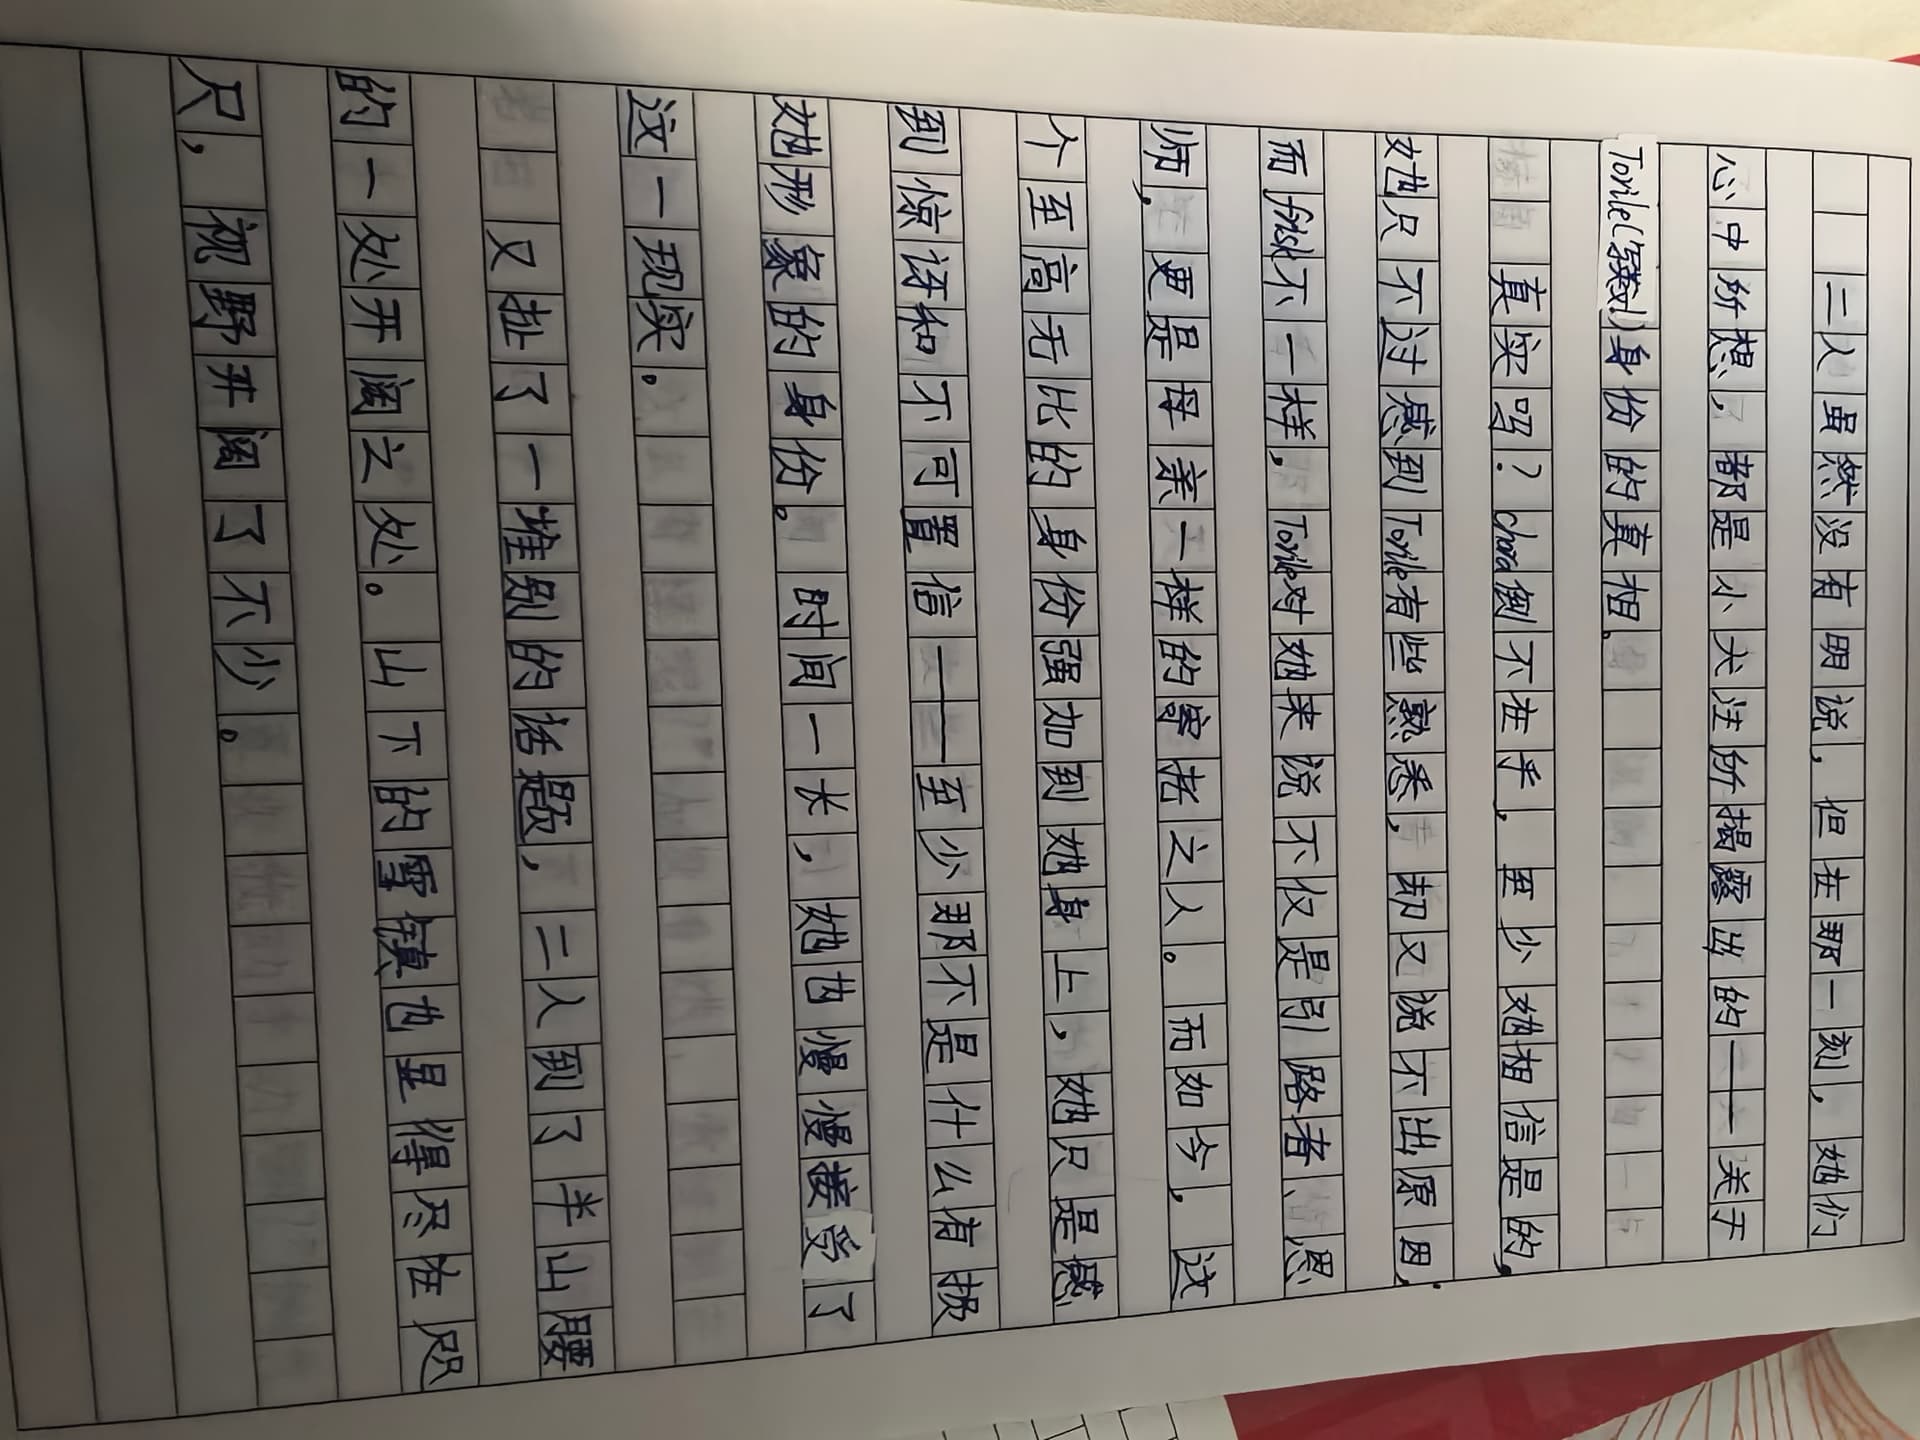 二人虽然没有明说，但在那一刻，她们
心中所想，都是小犬注所揭露出的——关于
Torile(羁)身份的真相。
真实吗？chara倒不在乎，至少她相信是的，
她只不过感到Torile有些熟悉，却又说不出原因；
而frisk不一样，Torile对她来说不仅是引路者、恩
师，更是母亲一样的寄托之人。而如今，这
个至高无比的身份强加到她身上，她只是感
到惊讶和不可置信——至少那不是什么有损
她形象的身份。时间一长，她也慢慢接受了
这一现实。
又扯了一堆别的话题，二人到了半山腰
的一处开阔之处。山下的雪镇也显得尽在咫
尺，视野开阔了不少。